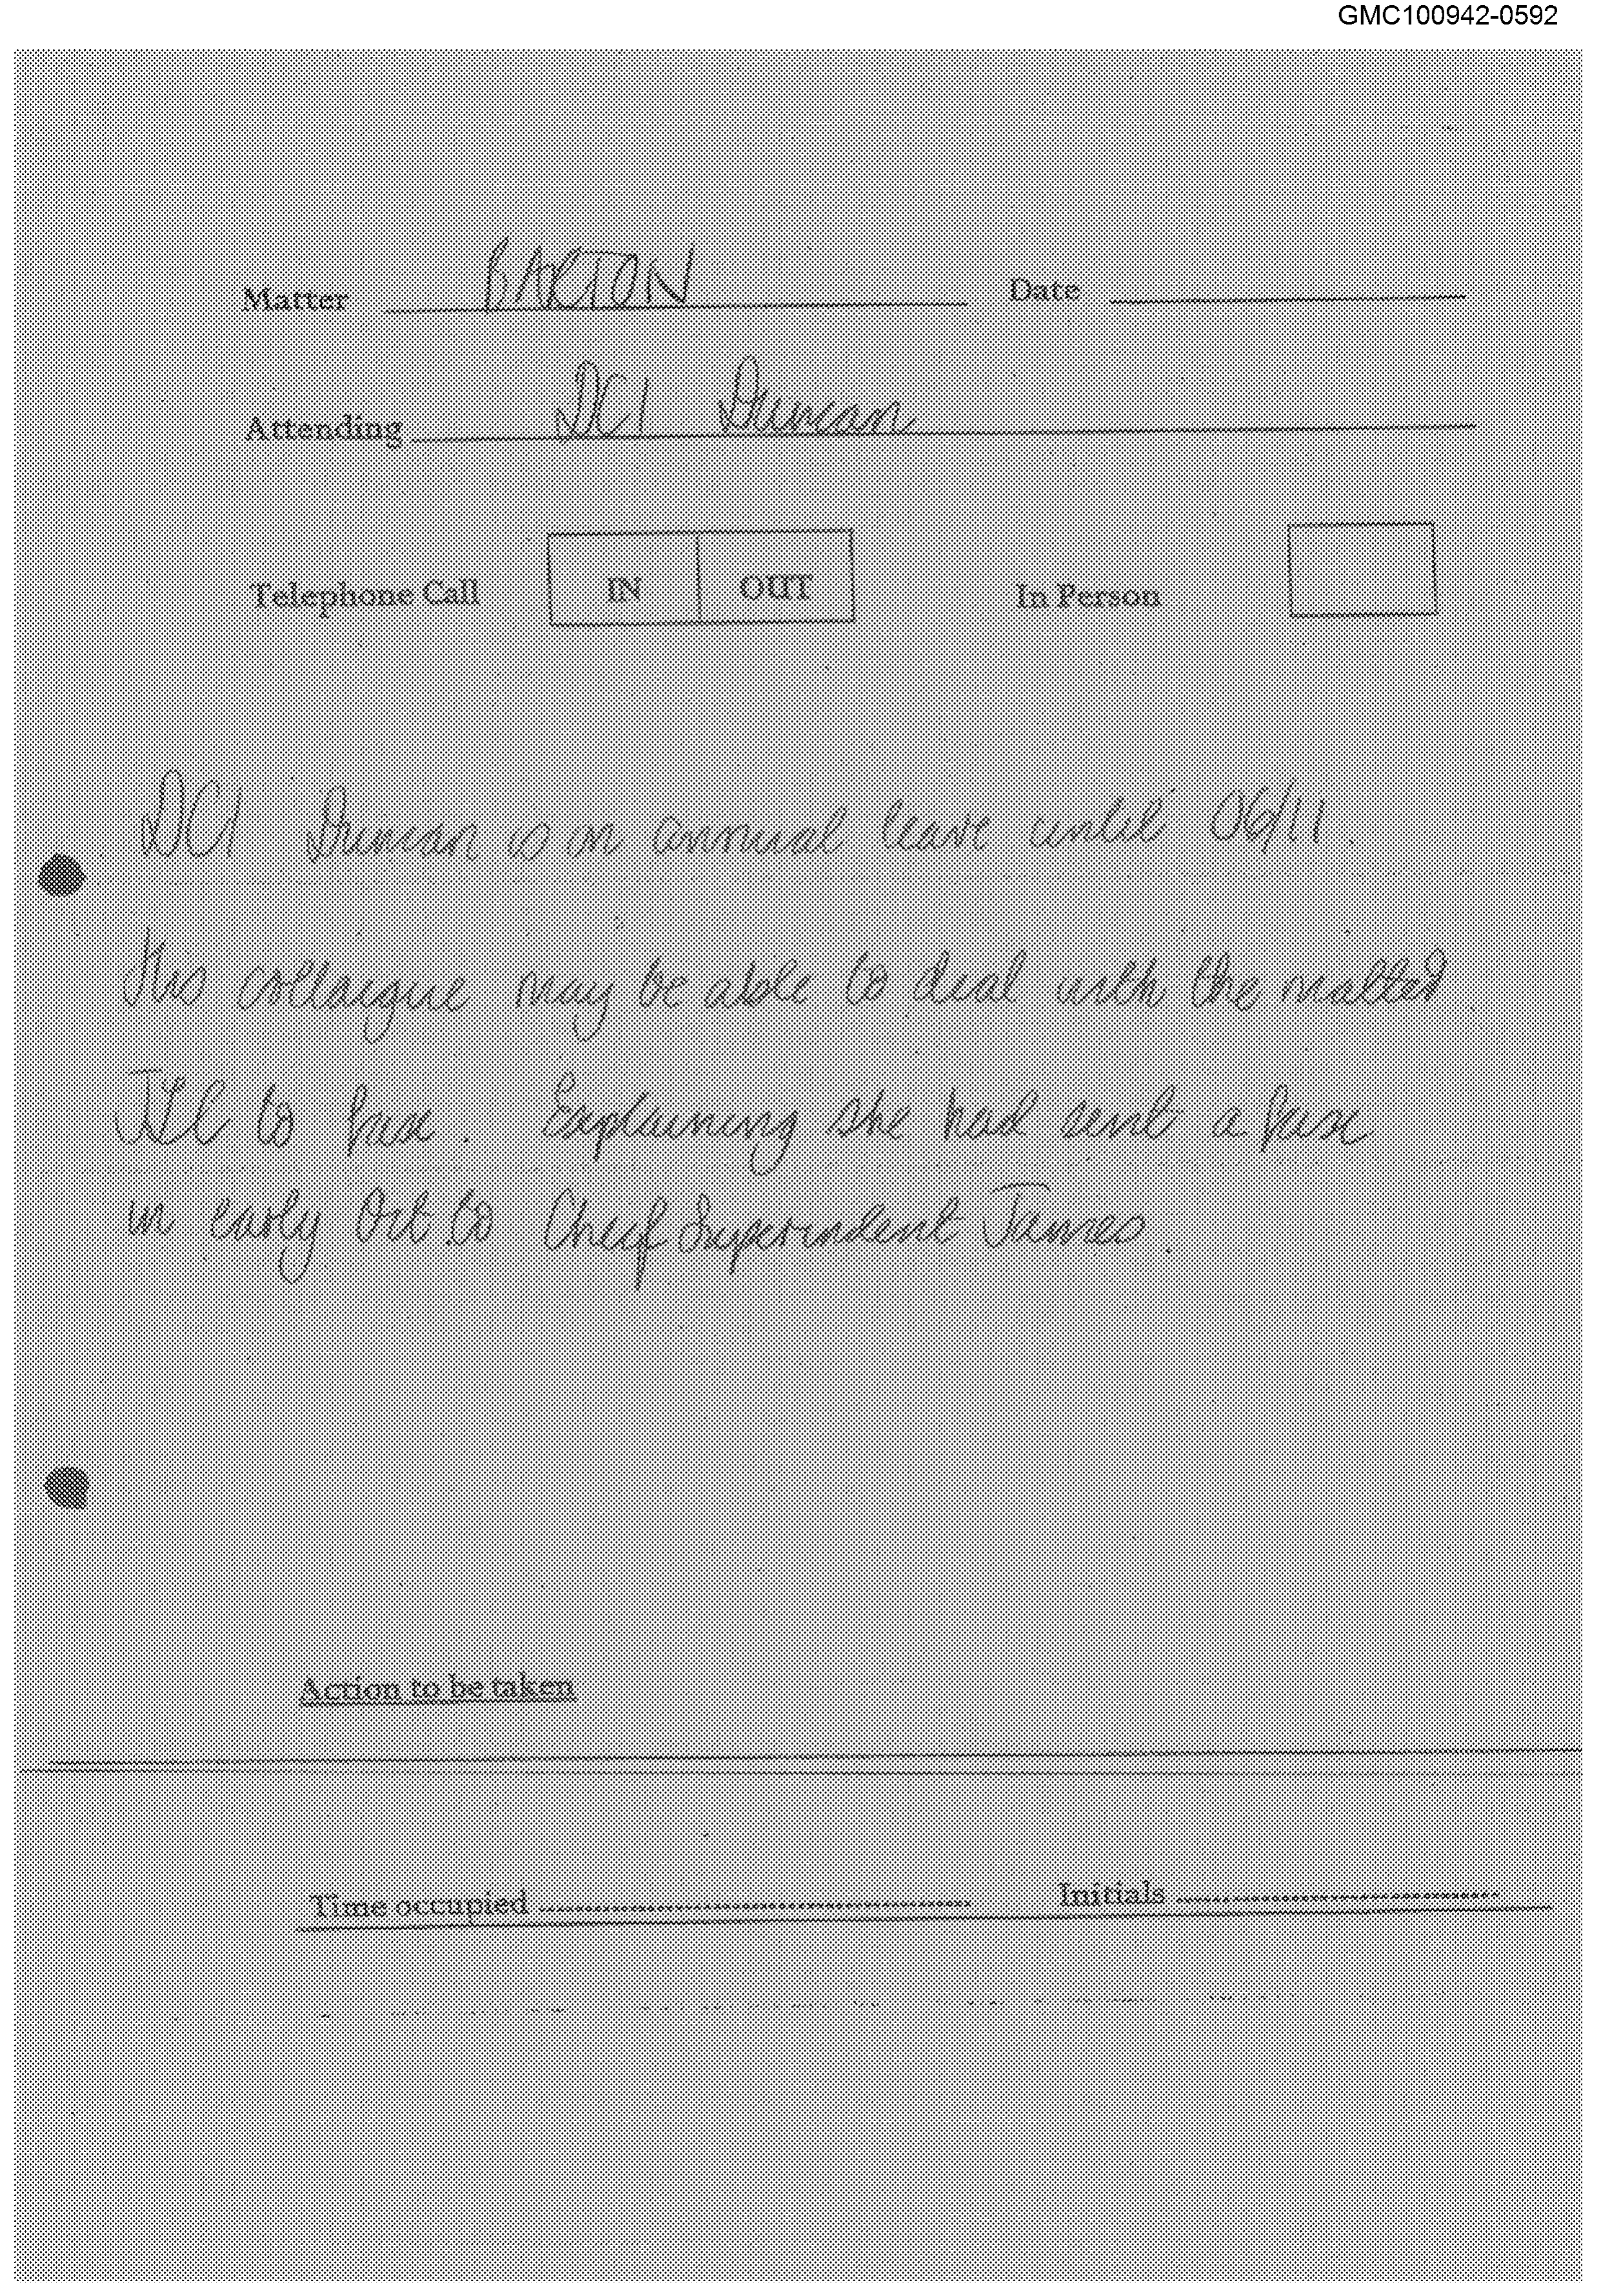 GMC100942-0592
Matter BARTON Date
Attending DCI Duncan
Telephone Call IN OUT In Person
DCI Duncan is on annual leave until 06/11.
His colleague may be able to deal with the matter
to fax. Explaining she had sent a fax
in early Oct. to Chief Superindent James.
Action to be taken
Time occupied Initials